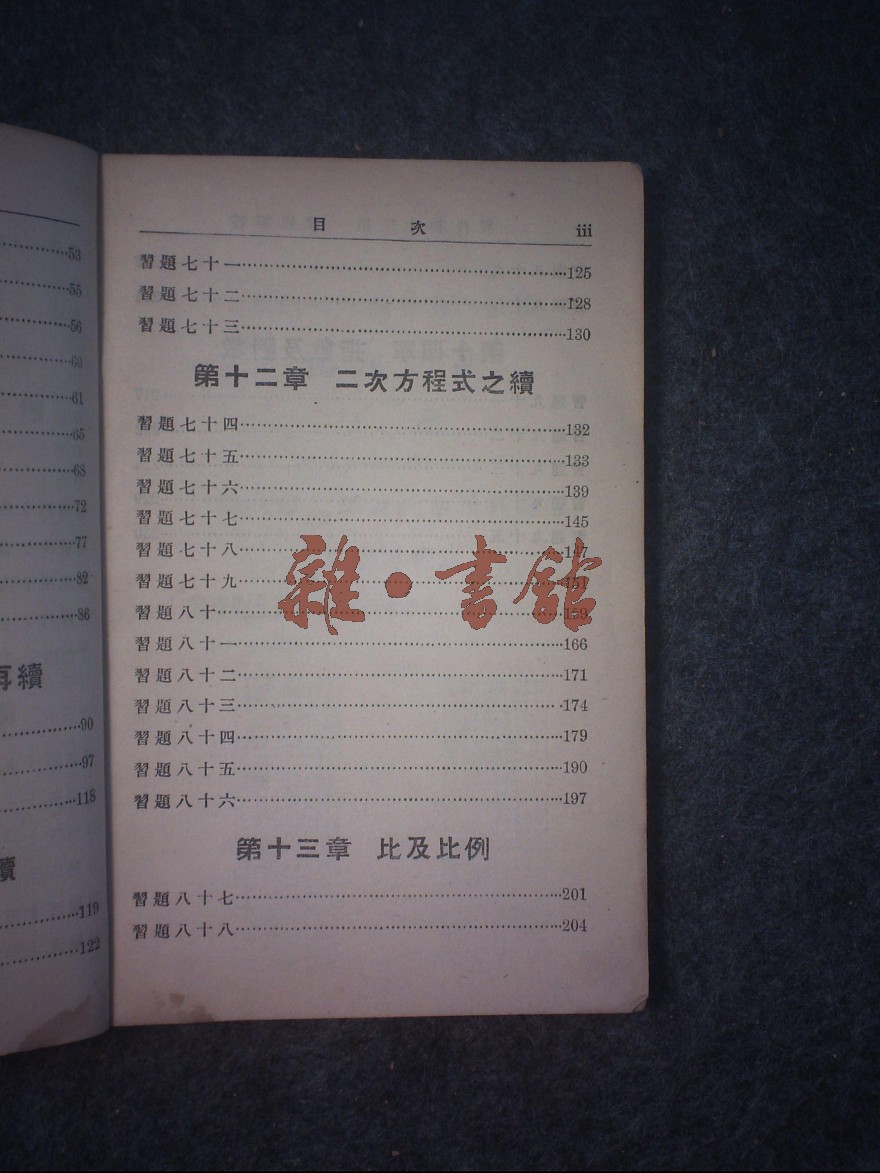 53
55
56
60
61
65
68
72
77
82
86
再續
90
97
118
續
119
122
目 次 iii
習題七十一 125
習題七十二 128
習題七十三 130
第十二章 二次方程式之續
習題七十四 132
習題七十五 133
習題七十六 139
習題七十七 145
習題七十八 147
習題七十九 151
習題八十 159
習題八十一 166
習題八十二 171
習題八十三 174
習題八十四 179
習題八十五 190
習題八十六 197
第十三章 比及比例
習題八十七 201
習題八十八 204
雜·書館